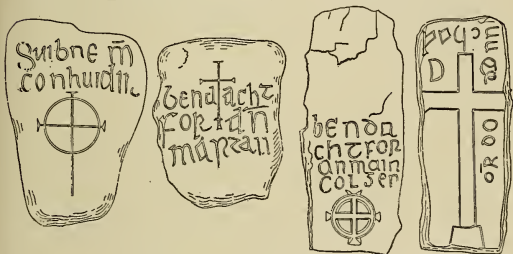 Suibne m̄
conhuidir
bendacht
for an
martan
benda
cht for
anmain
colgen
or do